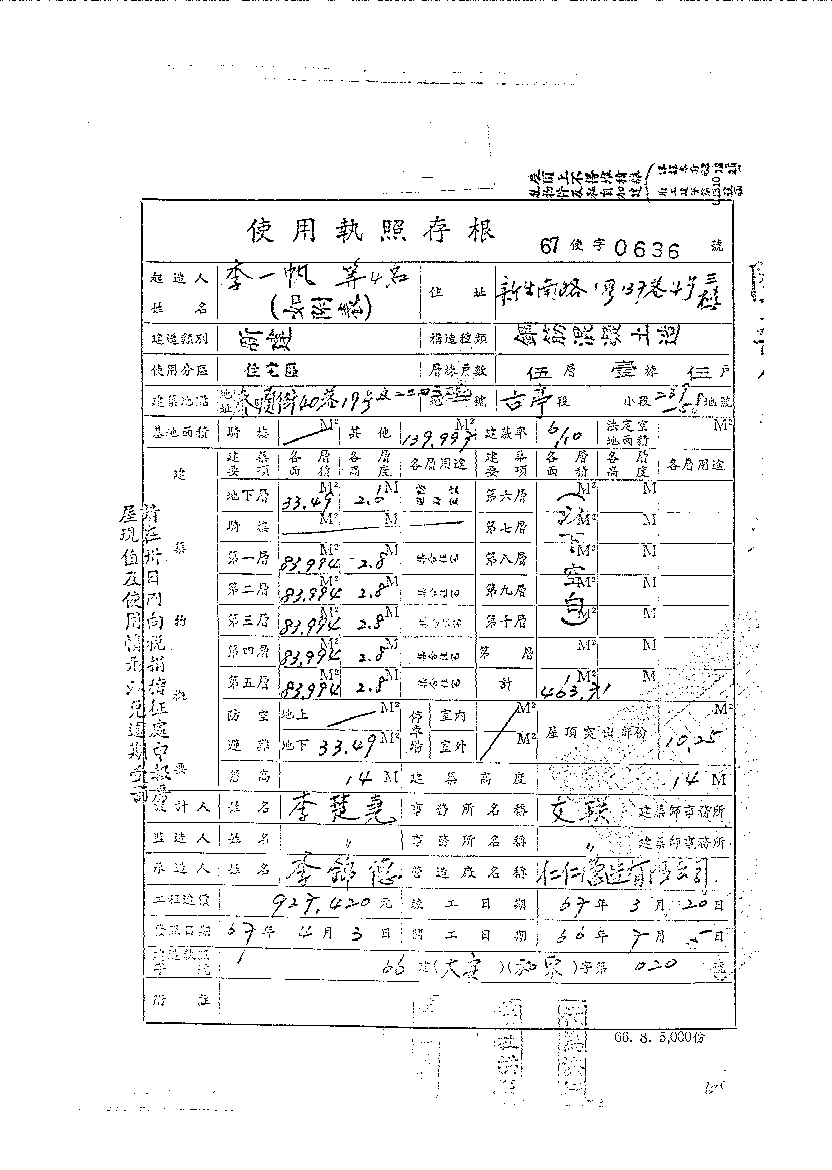 使用執照存根
67 使字 0636 號
起造人姓名 李一帆 等4名
住址 新生南路 137巷4號
建造類別
構造種類
使用分區 住宅區
層棟戶數 伍層 壹棟 伍戶
建築地點 地址 泰順街40巷19號
地號 古亭段 小段 地號
基地面積 騎樓 M² 其他 139.997 M² 建蔽率 6/10 法定空地面積 M²
建築物概要
建築要項 各層面積 各層高度 各層用途 建築要項 各層面積 各層高度 各層用途
地下層 33.49 M² 2.8 M 第六層 M² M
騎樓 M² M 第七層 M² M
第一層 83.994 M² 2.8 M 第八層 M² M
第二層 83.994 M² 2.8 M 第九層 M² M
第三層 83.994 M² 2.8 M 第十層 M² M
第四層 83.994 M² 2.8 M 第 層 M² M
第五層 83.994 M² 2.8 M 計 463.71 M² M
以下空白
防空避難 地上 M² 停車場 室內 M² 屋頂突出部份 10.25 M²
地下 33.49 M² 室外 M²
簷高 14 M 建築高度 14 M
設計人 姓名 李楚堯 事務所名稱 文联 建築師事務所
監造人 姓名 〃 事務所名稱 〃 建築師事務所
承造人 姓名 李錦 營造廠名稱 仁仁營造有限公司
工程造價 927,420 元 竣工日期 67年3月20日
發照日期 67年4月3日 開工日期 66年7月5日
66 建(大安)( )字第 020 號
附註
請在卅日內向稅捐稽徵處申報房屋現值及使用情形以免逾期受罰
66. 8. 5,000份